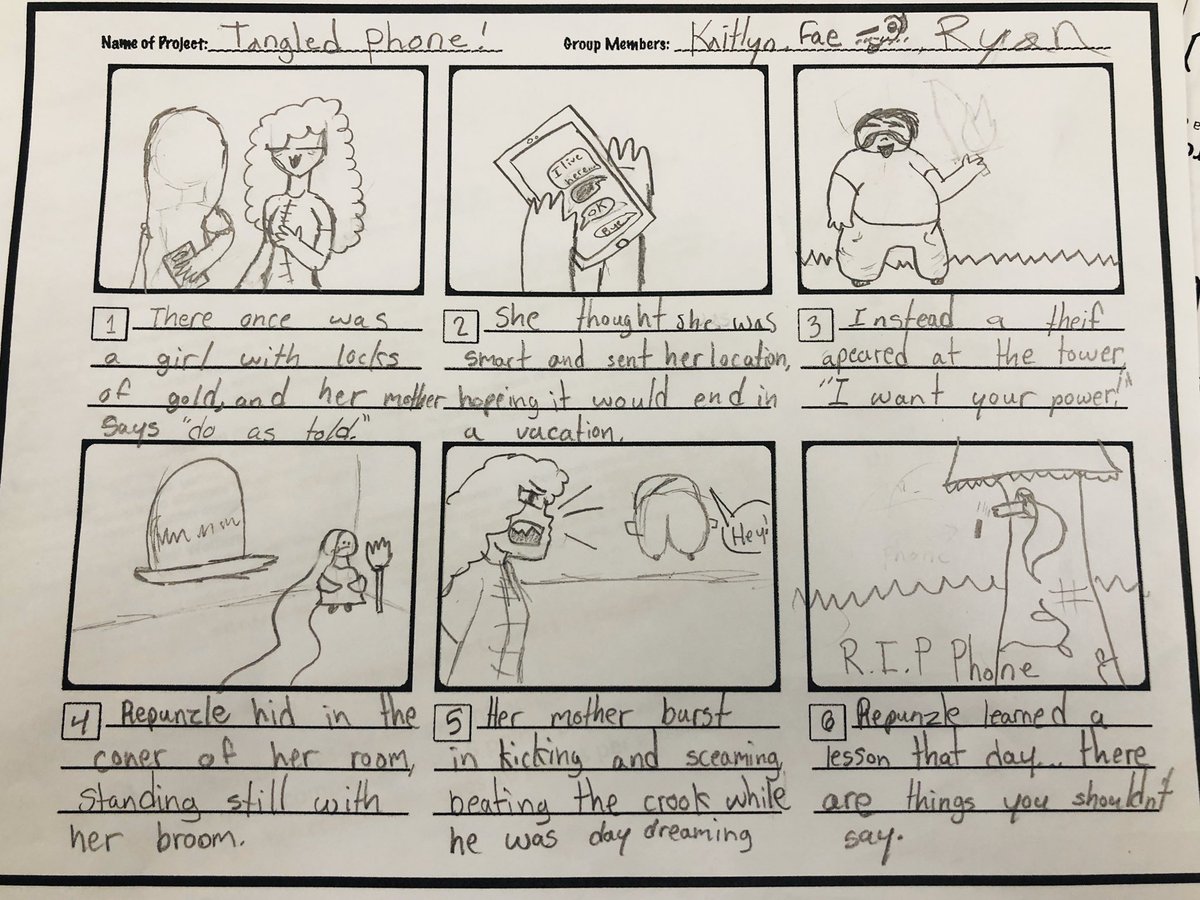 Name of Project: Tangled Phone!
Group Members: Kaitlyn, Fae, Ryan
I live
here...
OK
1 There once was
a girl with locks
of gold, and her mother
says "do as told."
2 She thought she was
smart and sent her location,
hopeing it would end in
a vacation.
3 Instead a theif
apeared at the tower,
"I want your power!"
Hey!
Phone
R.I.P Phone
4 Repunzle hid in the
coner of her room,
standing still with
her broom.
5 Her mother burst
in kicking and sceaming,
beating the crook while
he was day dreaming
6 Repunzle learned a
lesson that day... there
are things you shouldn't
say.